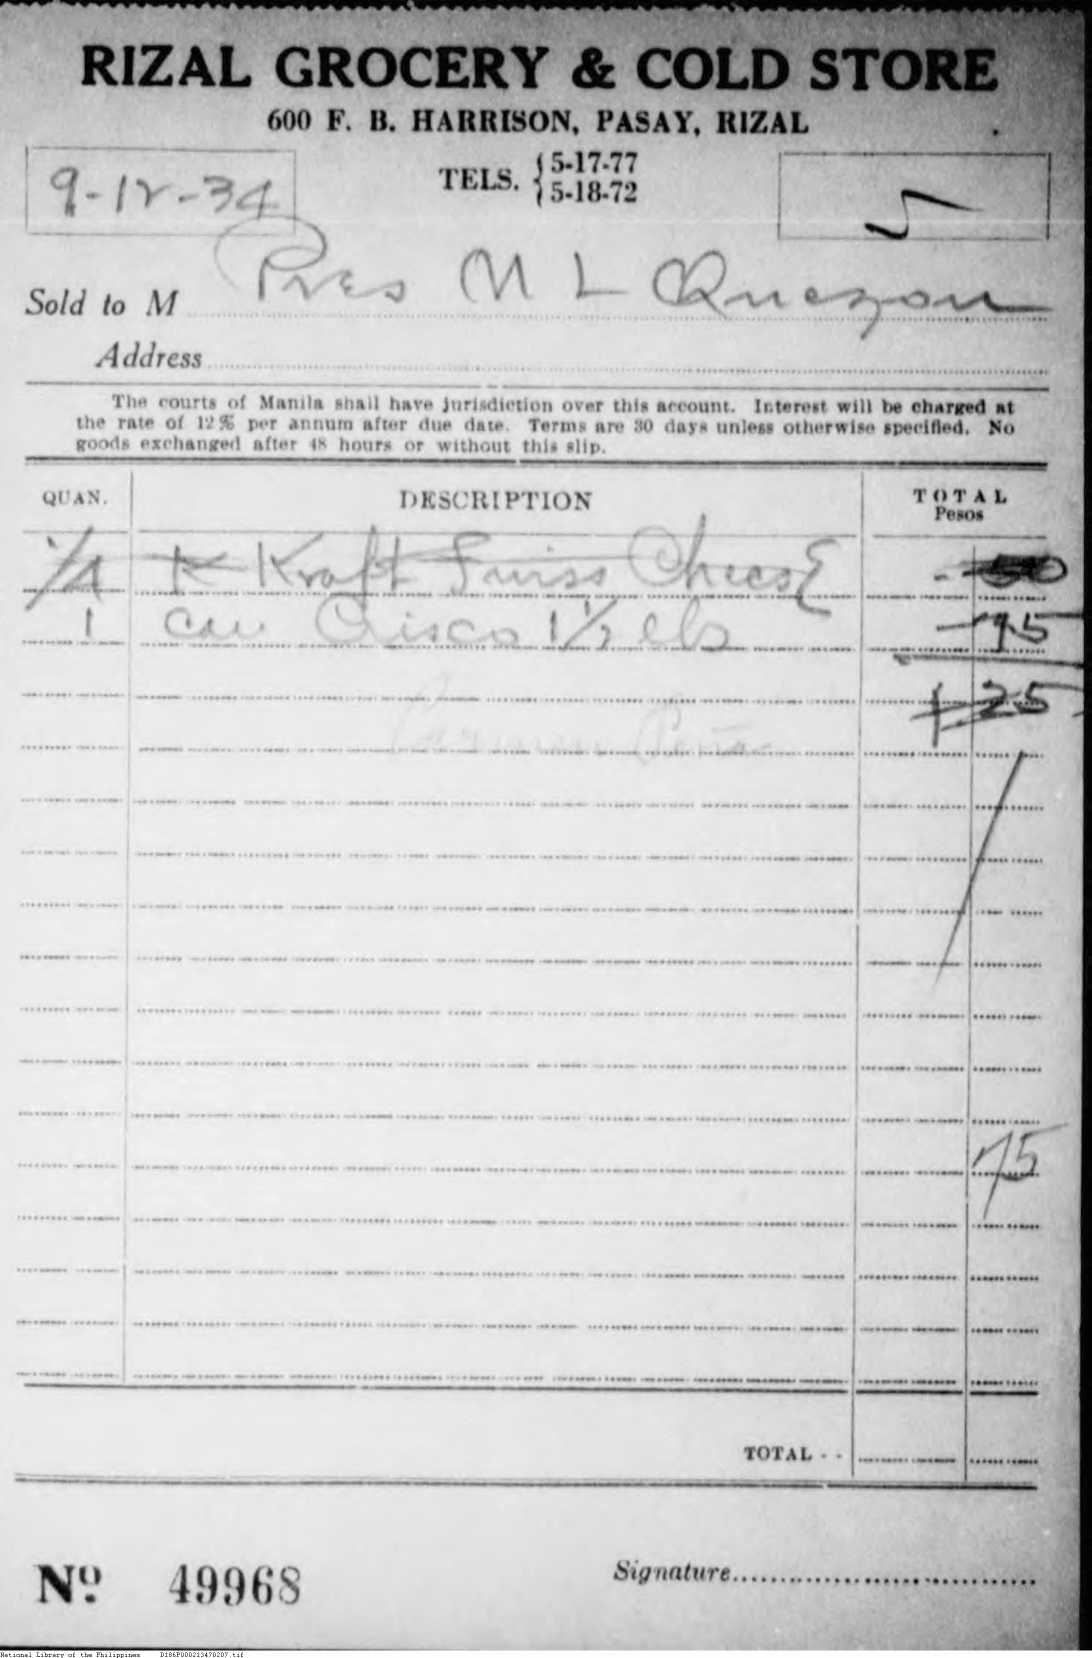 RIZAL GROCERY & COLD STORE
600 F. B. HARRISON, PASAY, RIZAL
TELS. { 5-17-77
5-18-72
9-12-34
5
Sold to M Pres M L Quezon
Address
The courts of Manila shall have jurisdiction over this account. Interest will be charged at
the rate of 12% per annum after due date. Terms are 30 days unless otherwise specified. No
goods exchanged after 48 hours or without this slip.
QUAN. DESCRIPTION TOTAL
Pesos
1/4 K Kraft Swiss Cheese - 50
1 can Crisco 1 1/2 lb - 75
1 25
75
TOTAL - -
Nº 49968
Signature
National Library of the Philippines D186P000213470207.tif